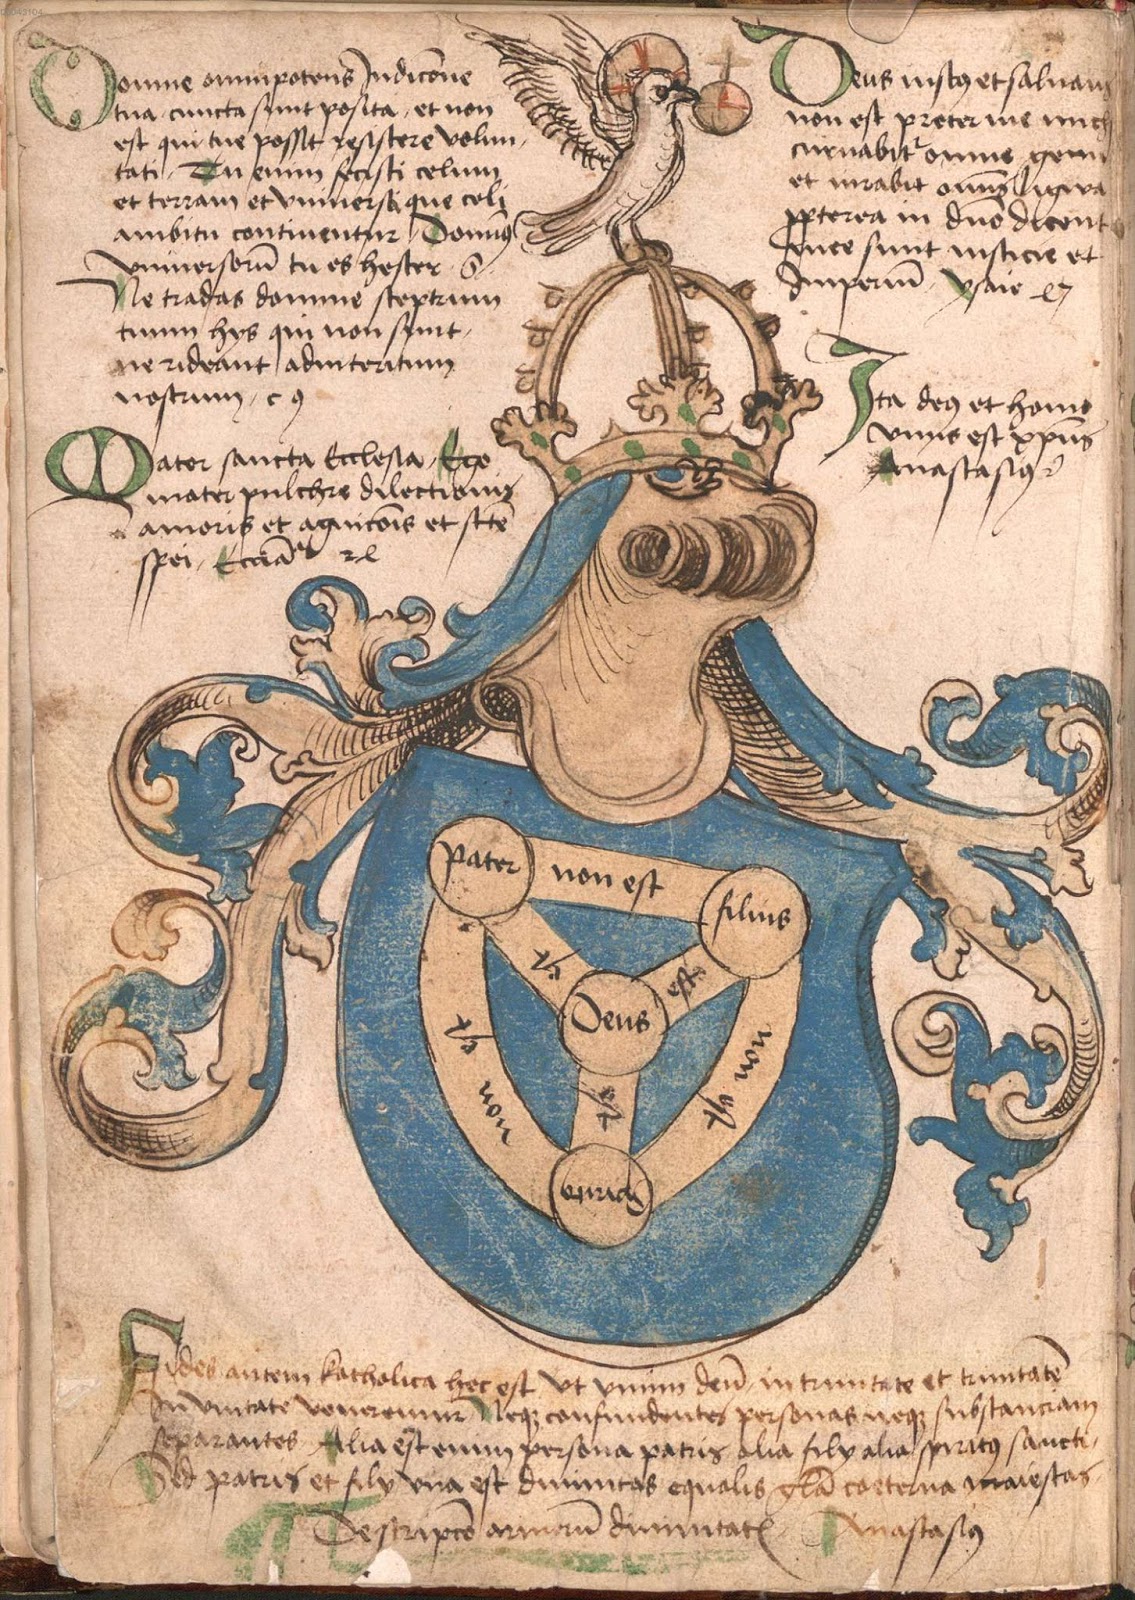 Domine omnipotens In dicione
tua cuncta sunt posita et non
est qui tue possit resistere volun
tati Tu enim fecisti celum
et terram et universa que celi
ambitu continentur Domin9
universorū tu es hester
Ne tradas domine sceptrum
tuum hys qui non sunt
ne rideant ad interitum
nostrum
Mater sancta Ecclesia Ego
mater pulchre dilectionis
amoris et agnicōis et scte
spei
Deus iust9 et salvans
non est preter me mich
curvabit omne genu
et iurabit omīs lingua
ppterea in dno dicent
mee sunt iusticie et
Imperiū ysaie
Ita de9 et homo
unus est xpus
Anastasius
Pater non est filius
est est
Deus
est non est
non est
spiritus
Fides autem katholica hec est Ut unum deū in trinitate et trinitatē
In unitate veneremur Neq confundentes personas neq substanciam
separantes Alia est enim persona patris alia fily alia spirit9 sancti
Sed patris et fily una est divinitas equalis glā coeterna maiestas
Descripcō armorū divinitatis Anastasi9